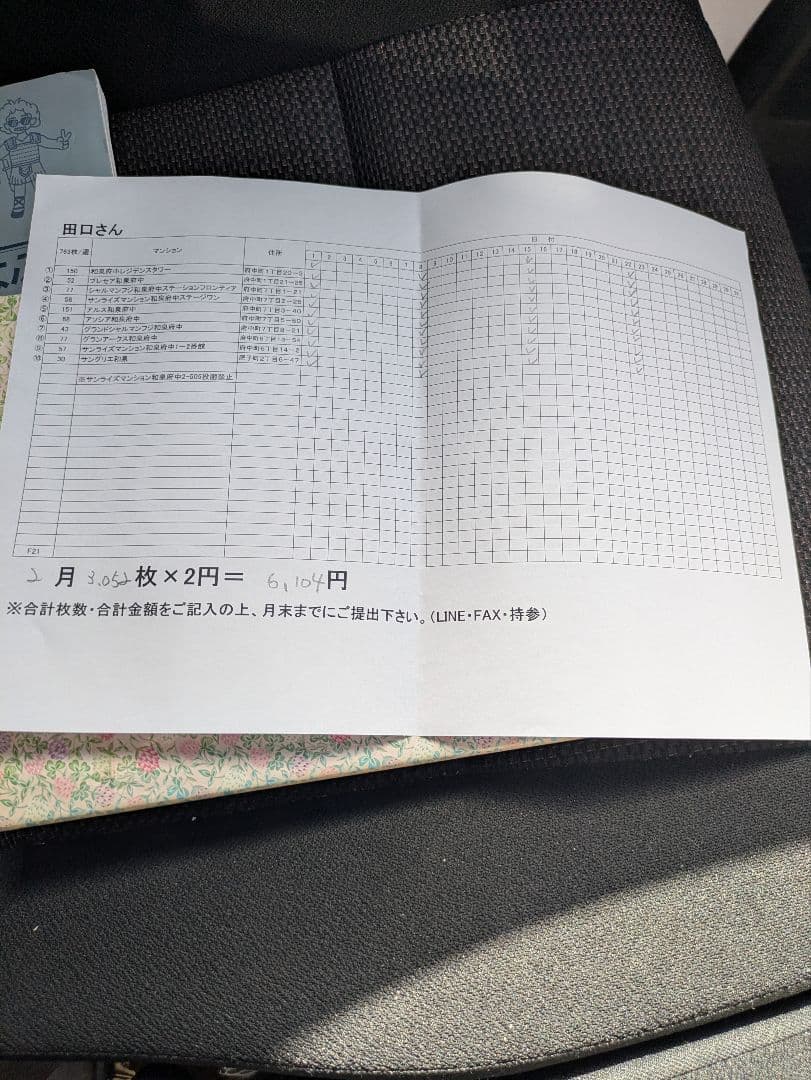 田口さん
763枚/週 マンション 住所 日付
1 2 3 4 5 6 7 8 9 10 11 12 13 14 15 16 17 18 19 20 21 22 23 24 25 26 27 28 29 30 31
① 150 和泉府中レジデンスタワー 府中町1丁目20-5
② 52 プレセア和泉府中 府中町1丁目21-25
③ 77 シャルマンフジ和泉府中ステーションフロンティア 府中町7丁目1-21
④ 58 サンライズマンション和泉府中ステージワン 府中町7丁目2-25
⑤ 151 アルス和泉府中 府中町7丁目3-40
⑥ 68 アッシア和泉府中 府中町7丁目5-60
⑦ 43 グランドシャルマンフジ和泉府中 府中町7丁目8-21
⑧ 77 グランアークス和泉府中
⑨ 57 サンライズマンション和泉府中1-2番館 府中町6丁目14-2
⑩ 30 サングリエ和泉 肥子町2丁目6-47
※サンライズマンション和泉府中2-505投函禁止
F21
2月 3,052枚×2円= 6,104円
※合計枚数・合計金額をご記入の上、月末までにご提出下さい。(LINE・FAX・持参)